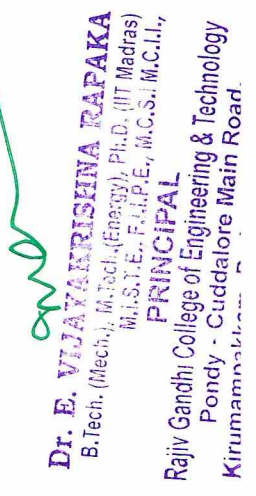 Dr. E. VIJAYAKRISHNA RAPAKA
B.Tech. (Mech.), M.Tech.(Energy), Ph.D. (IIT Madras)
M.I.S.T.E., F.I.I.P.E., M.C.S.I M.C.I.I.,
PRINCIPAL
Rajiv Gandhi College of Engineering & Technology
Pondy - Cuddalore Main Road,